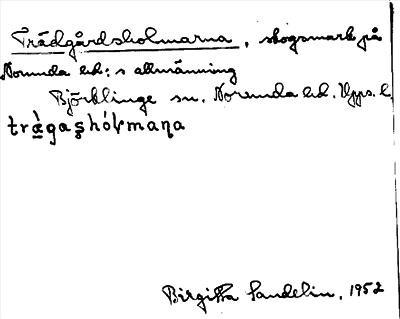 Trädgårdsholmarna, skogsmark på
Norunda hd:s allmänning
Björklinge sn. Norunda hd. Upps. l.
trä̀gaşhól̵maṇa
Birgitta Sandelin, 1952